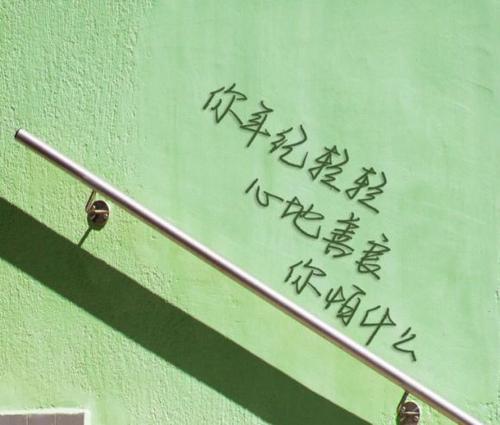 你年纪轻轻
心地善良
你怕什么